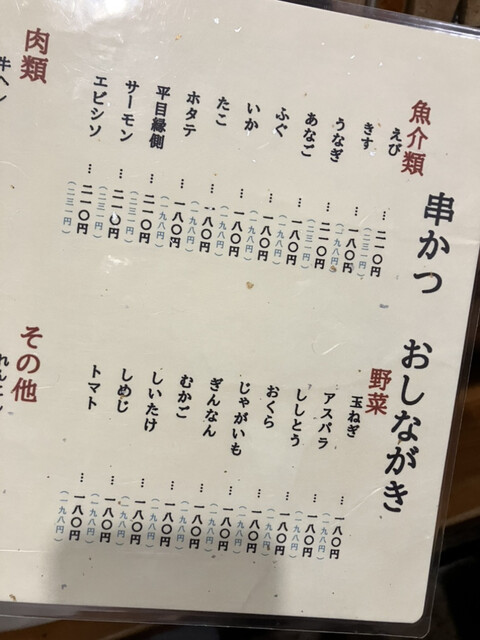 串かつ おしながき
魚介類
えび … 二一〇円
（二三一円）
きす … 一八〇円
（一九八円）
うなぎ … 二一〇円
（二三一円）
あなご … 一八〇円
（一九八円）
ふぐ … 一八〇円
（一九八円）
いか … 一八〇円
（一九八円）
たこ … 一八〇円
（一九八円）
ホタテ … 一八〇円
（一九八円）
平目縁側 … 二一〇円
（二三一円）
サーモン … 二一〇円
（二三一円）
エビシソ … 二一〇円
（二三一円）
野菜
玉ねぎ … 一八〇円
（一九八円）
アスパラ … 一八〇円
（一九八円）
ししとう … 一八〇円
（一九八円）
おくら … 一八〇円
（一九八円）
じゃがいも … 一八〇円
（一九八円）
ぎんなん … 一八〇円
（一九八円）
むかご … 一八〇円
（一九八円）
しいたけ … 一八〇円
（一九八円）
しめじ … 一八〇円
（一九八円）
トマト … 一八〇円
（一九八円）
肉類
その他